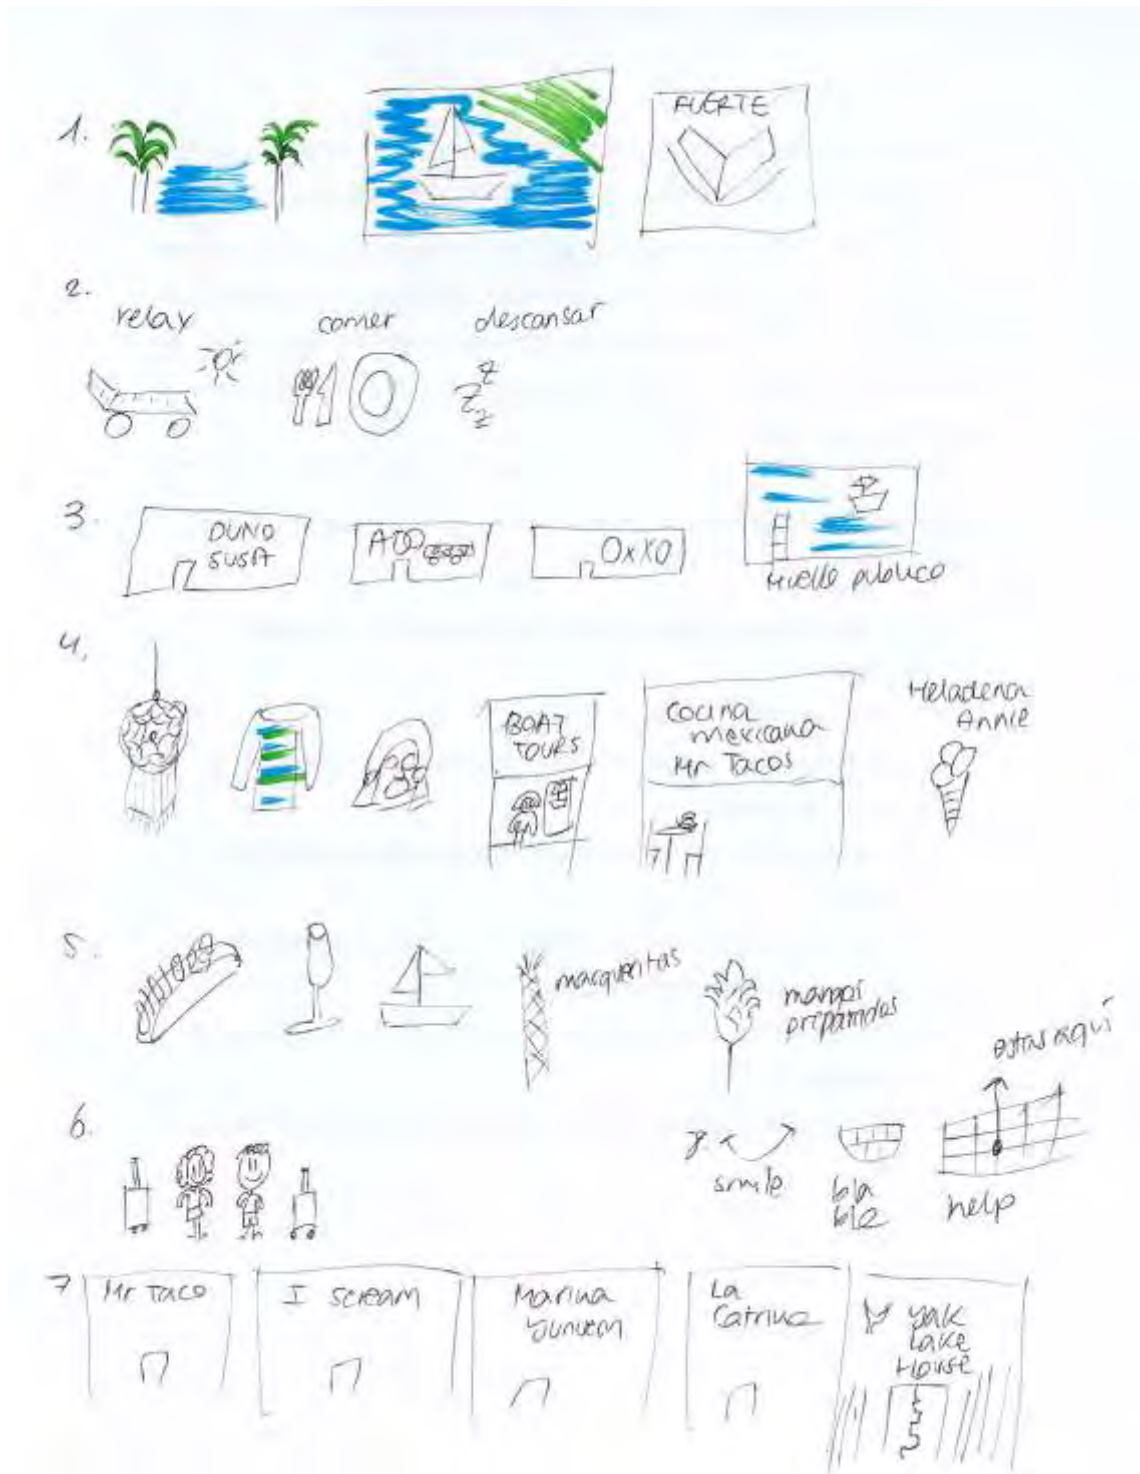 1.
FUERTE
2.
relax
comer
descansar
3.
DUNO
SUSA
ADO
OXXO
Muelle público
4.
BOAT
TOURS
Cocina
mexicana
Mr Tacos
Heladeria
Annie
5.
macquesitas
mangos
preparados
estas aquí
6.
8.
smile
bla
bla
help
7
Mr Taco
I scream
Marina
La
Catrina
yak
Lake
House